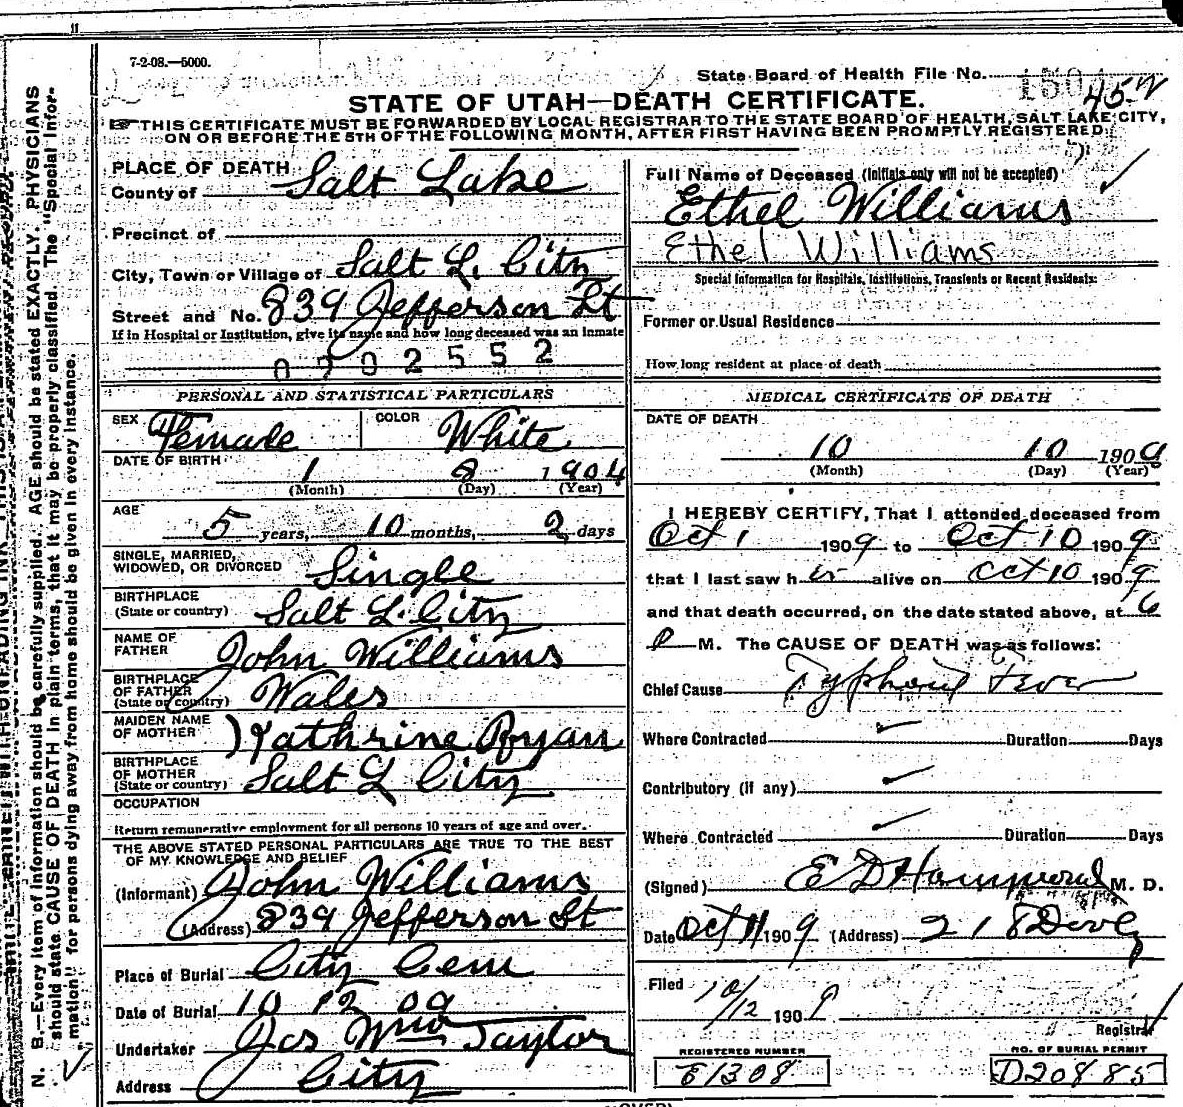 11
7-2-08.—5000.
State Board of Health File No.
45 W
STATE OF UTAH—DEATH CERTIFICATE.
☞ THIS CERTIFICATE MUST BE FORWARDED BY LOCAL REGISTRAR TO THE STATE BOARD OF HEALTH, SALT LAKE CITY,
ON OR BEFORE THE 5TH OF THE FOLLOWING MONTH, AFTER FIRST HAVING BEEN PROMPTLY REGISTERED.
PLACE OF DEATH
County of Salt Lake
Precinct of
City, Town or Village of Salt L. City
Street and No. 839 Jefferson St
If in Hospital or Institution, give its name and how long deceased was an inmate
0902552
PERSONAL AND STATISTICAL PARTICULARS
SEX Female COLOR White
DATE OF BIRTH 1 8 1904
(Month) (Day) (Year)
AGE
5 years, 10 months, 2 days
SINGLE, MARRIED,
WIDOWED, OR DIVORCED Single
BIRTHPLACE
(State or country) Salt L. City
NAME OF
FATHER John Williams
BIRTHPLACE
OF FATHER
(State or country) Wales
MAIDEN NAME
OF MOTHER Kathrine Ryan
BIRTHPLACE
OF MOTHER
(State or country) Salt L City
OCCUPATION
Return remunerative employment for all persons 10 years of age and over.
THE ABOVE STATED PERSONAL PARTICULARS ARE TRUE TO THE BEST
OF MY KNOWLEDGE AND BELIEF
(Informant) John Williams
(Address) 839 Jefferson St
Place of Burial City Cem
Date of Burial 10 12 09
Undertaker Jos Wm Taylor
Address City
Full Name of Deceased (Initials only will not be accepted)
Ethel Williams
Ethel Williams
Special Information for Hospitals, Institutions, Transients or Recent Residents:
Former or Usual Residence
How long resident at place of death
MEDICAL CERTIFICATE OF DEATH
DATE OF DEATH
10 10 1909
(Month) (Day) (Year)
I HEREBY CERTIFY, That I attended deceased from
Oct 1 1909 to Oct 10 1909
that I last saw her alive on Oct 10 1909
and that death occurred, on the date stated above, at 6
P M. The CAUSE OF DEATH was as follows:
Chief Cause Typhoid Fever
Where Contracted Duration Days
Contributory (if any)
Where Contracted Duration Days
(Signed) E D M. D.
Date Oct 11 1909 (Address) 218
Filed 10/12 1909
Registrar
REGISTERED NUMBER
E1308
NO. OF BURIAL PERMIT
D20885
N. B.—Every item of information should be carefully supplied. AGE should be stated EXACTLY. PHYSICIANS
should state CAUSE OF DEATH in plain terms, that it may be properly classified. The "Special Infor-
mation" for persons dying away from home should be given in every instance.
(OVER)